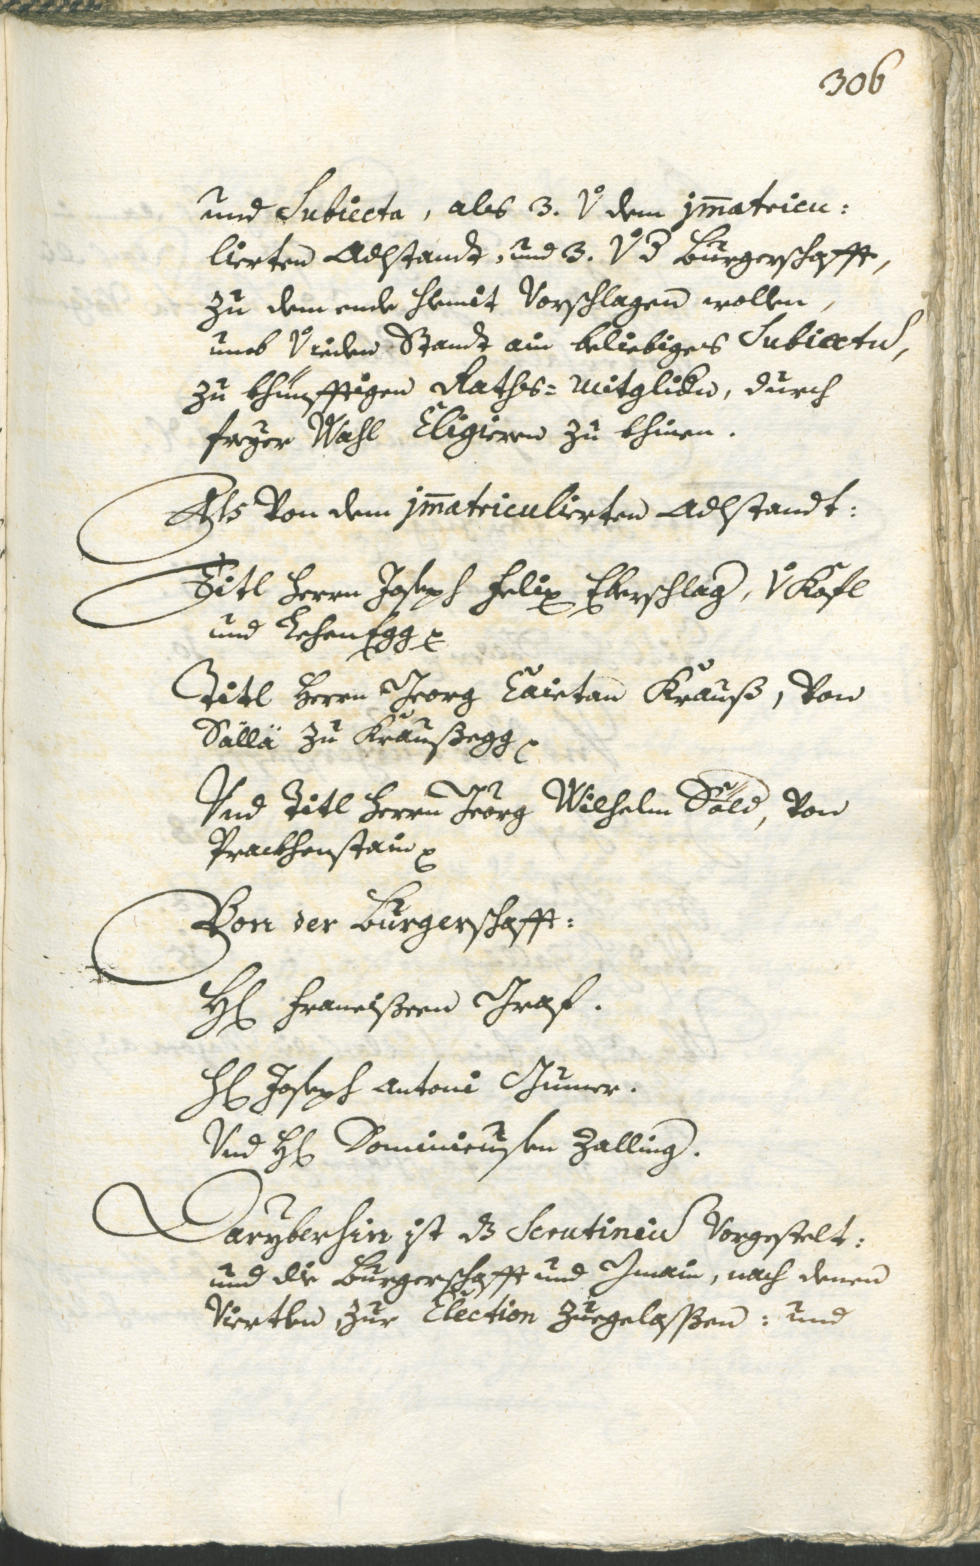 306
und Subiecta, als 3. v dem jm̄atricu:
lierten Adlstandt, und 3. v d Burgerschafft,
zu dem ende hiemit Vorschlagen wollen,
umb v ieden Standt ain beliebiges Subiectu,
zu khünfftigen Raths= mitglidn, durch
freyer Wahl Eligieren zu khinen.
Als Von dem jm̄atriculierten Adlstandt:
Titl herrn Joseph Felix Eberschlag, v Kofl
und LehenEgg
Titl Herrn Georg Caietan Krauß, Von
Sällä zu Kraußegg
Vnd Titl herrn Georg Wilhelm Söld, Von
Prackhenstain
Von der Burgerschafft:
H Francißcen Graf.
H Joseph Antoni Gumer.
Vnd H Dominicusen Zalling.
Daryberhin ist dz Scrutiniu Vorgestelt:
und die Burgerschafft und Gmain, nach denen
Viertln zur Election zuegelassen: und